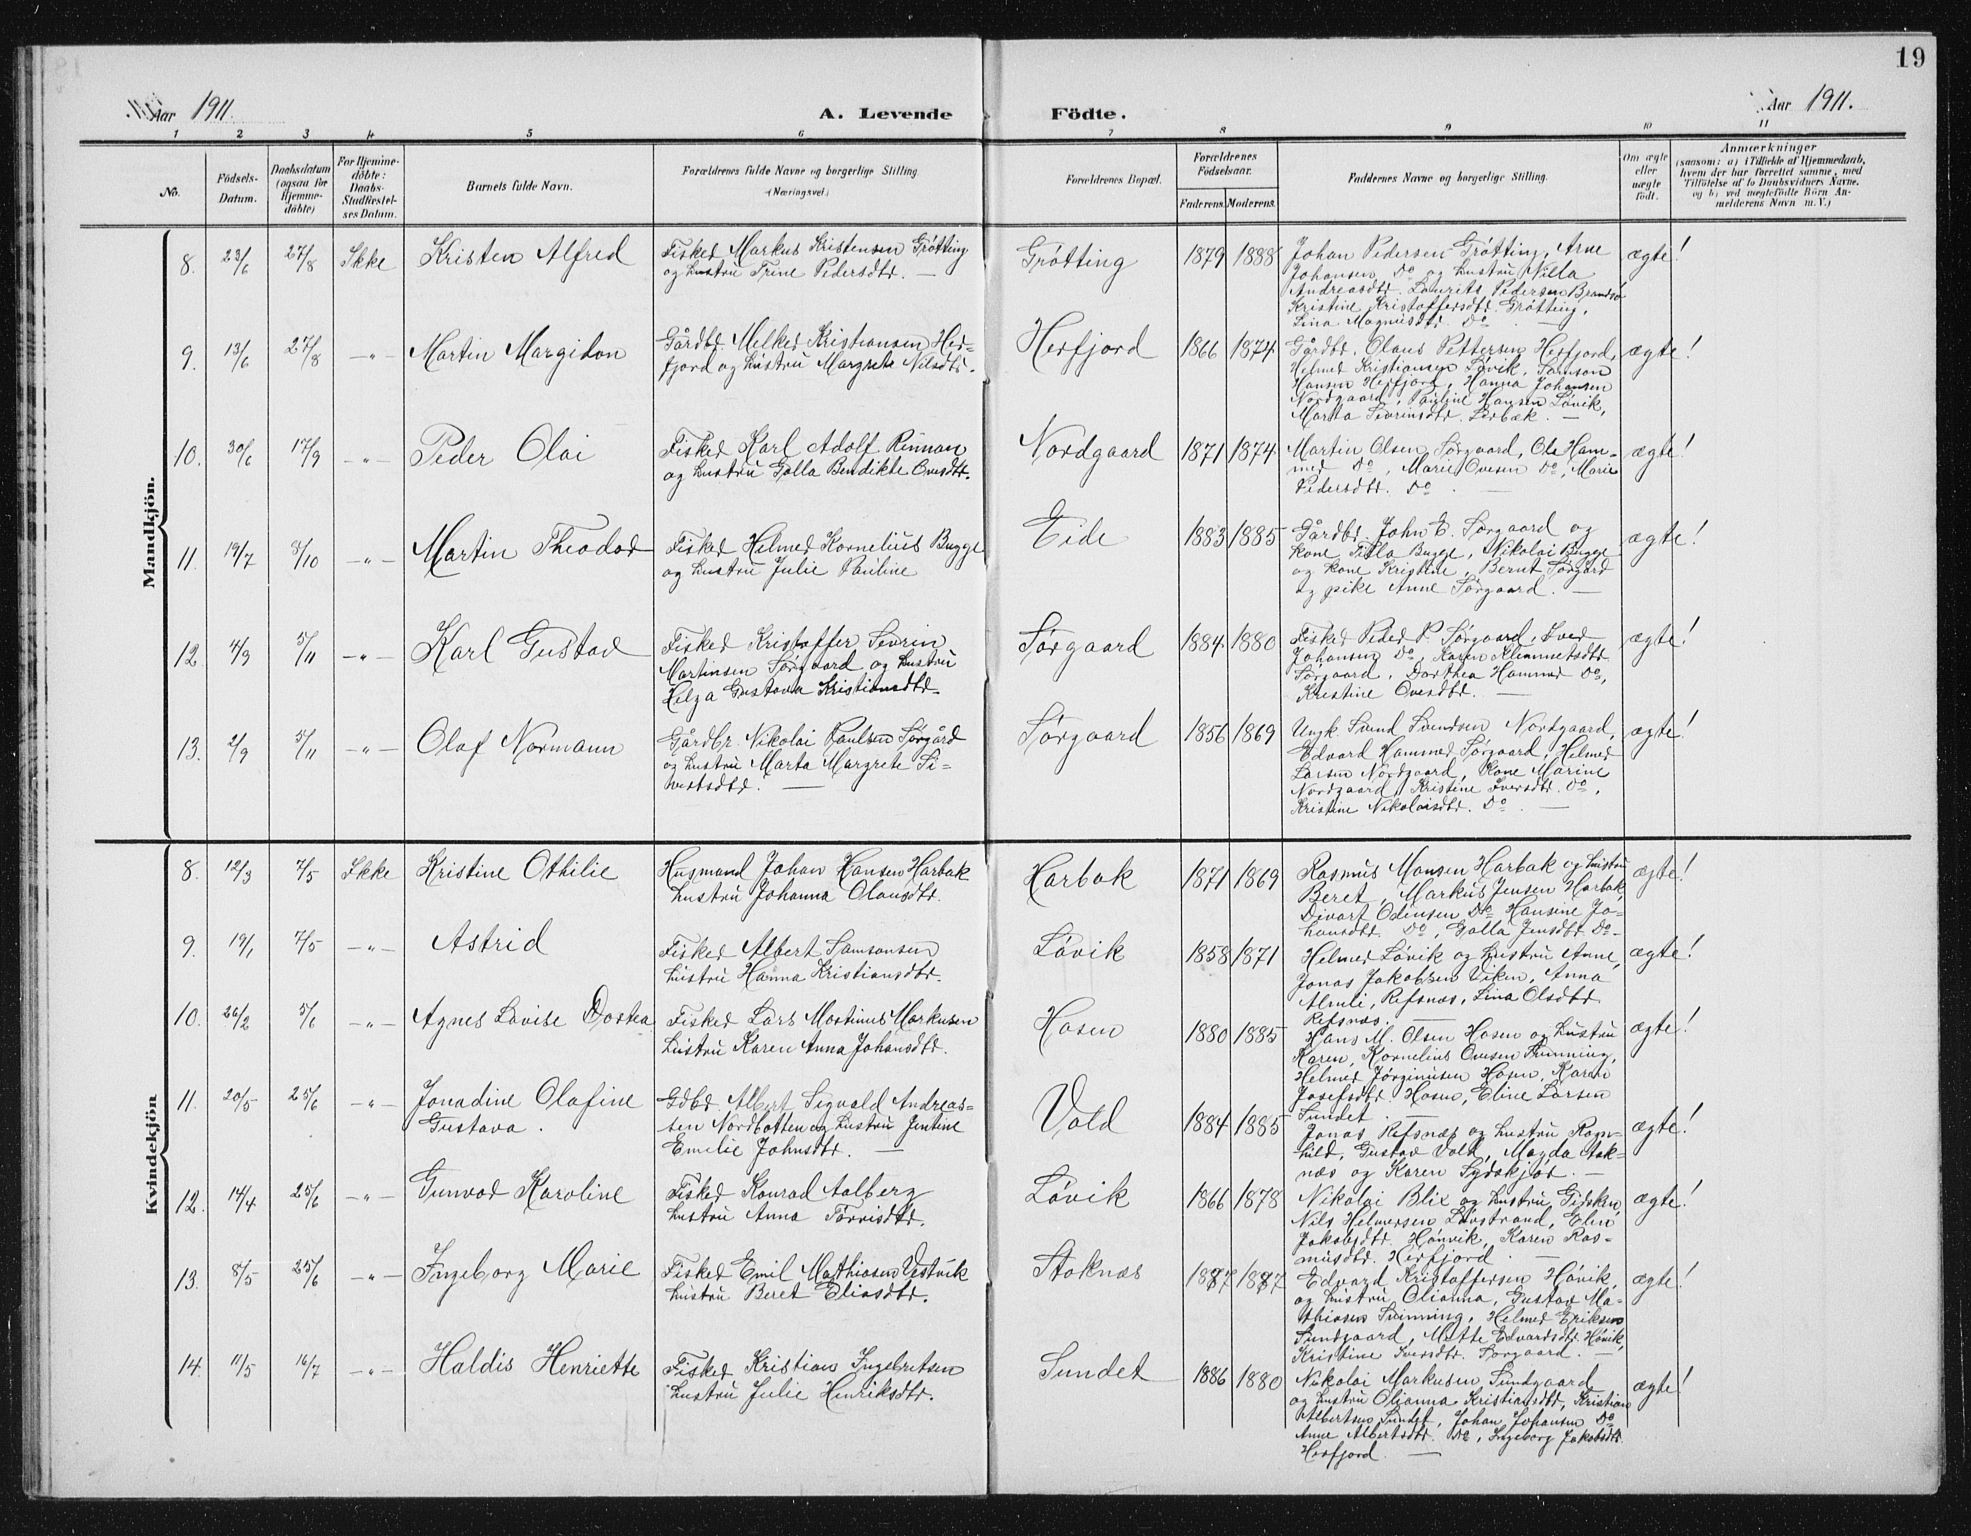 19
Aar 1911.
A. Levende Födte.
Aar 1911.
1 2 3 4 5 6 7 8 9 10 11
No.
Födsels-Datum.
Daabsdatum (ogsaa for Hjemme-døbte)
For Hjemme-døbte: Daabs-Stadfæstelses Datum.
Barnets fulde Navn.
Forældrenes fulde Navne og borgerlige Stilling (Næringsvei)
Forældrenes Bopæl.
Forældrenes Fødselsaar.
Faderens. Moderens.
Faddernes Navne og borgerlige Stilling.
Om ægte eller uægte født.
Anmærkninger
(saasom: a) i Tilfælde af Hjemmedaab, hvem der har forrettet samme, med Tilføielse af to Daabsvidners Navne, og b) ved uægtefødte Börn Anmelderens Navn m. V.)
Mandkjön.
8. 23/6 27/8 Ikke Kristen Alfred
Fisker Markus Kristensen Grøtting
og hustru Trine Pedersdtr. —
Grøtting 1879 1888
Johan Pedersen Grøtting, Arne
Johansen Do og hustru Nilla
Andreasdtr. Laurits Pedersen Brandsø
Kristine Kristoffersdtr. Grøtting,
Lina Magnusdtr. Do —
ægte!
9. 13/6 27/8 -"- Martin Margidon
Gårdbr. Melker Kristiansen Her-
fjord og hustru Margrete Nilsdtr.
Herfjord 1866 1874
Gårdbr. Olaus Pettersen Herfjord,
Helmer Kristiansen Løvik, Samson
Hansen Herfjord, Hanna Johansen
Nordgaard, Pauline Hansen Løvik,
Marta Sivrinsdtr. Lerbæk. —
ægte!
10. 30/6 17/9 -"- Peder Olai
Fisker Karl Adolf Rinnan
og hustru Golla Bendikte Ovesdtr.
Nordgaard 1871 1874
Martin Olsen Sørgaard, Ole Ham-
mer Do, Marie Ovesen Do, Marie
Pedersdtr. Do. —
ægte!
11. 19/7 8/10 -"- Martin Theodor
Fisker Helmer Kornelius Bugge
og hustru Julie Pauline
Eide 1883 1885
Gårdbr. John E. Sørgaard og
kone Nikolai Bugge
og kone Kristine, Bernt Sørgård
og pike Anne Sørgaard. —
ægte!
12. 4/9 5/11 -"- Karl Gustav
Fisker Kristoffer Sivrin
Martinsen Sørgaard og hustru
Helga Gustava Kristiansdtr.
Sørgaard 1884 1880
Fisker Peder P. Sørgaard, Iver
Johansen Do, Karen Klemmetsdtr.
Sørgaard, Dorthea Hammer Do,
Kristine Ovesdtr. —
ægte!
13. 2/9 5/11 -"- Olaf Normann
Gårdbr. Nikolai Paulsen Sørgård
og hustru Marta Margrete Si-
vertsdtr. —
Sørgaard 1856 1869
Ungk. Svend Svendsen Nordgaard,
Edvard Hammer Sørgaard, Helmer
Larsen Nordgaard, Kone Marine
Nordgaard, Kristine Iversdtr. Do,
Kristine Nikolaisdtr. Do. —
ægte!
Kvindekjön
8. 12/3 7/5 Ikke Kristine Othilie
Husmand Johan Hansen Harbak
hustru Johanna Olausdtr.
Harbak 1871 1869
Rasmus Monsen Harbak og hustru
Beret, Markus Jensen Harbak,
Divart Odinsen Do Hansine Jo-
hansdtr. Do, Golla Jensdtr. Do -
ægte!
9. 19/1 7/5 -"- Astrid
Fisker Albert Samsonsen
hustru Hanna Kristiansdtr.
Løvik 1858 1871
Helmer Løvik og hustru Anne,
Jonas Jakobsen Viken, Anna
Almli, Refsnæs, Lina Olsdtr.
Refsnæs. —
ægte!
10. 26/2 5/6 -"- Agnes Lovise Dortea
Fisker Lars Martinus Markusen
hustru Karen Anna Johansdtr.
Hosen 1880 1885
Hans M. Olsen Hosen og hustru
Karen, Kornelius Ovesen Sumning,
Helmer Jørginusen Hosen, Karen
Josefsdtr. Hosen, Eline Larsen
Sundet. —
ægte!
11. 20/5 25/6 -"- Jonadine Olafine
Gustava.
Gdbr. Albert Sigvald Andreas-
sen Nordbotten og hustru Jentine
Emelie Johnsdtr. —
Vold 1884 1885
Jonas Refsnæs og hustru Ragn-
hild, Gustav Vold, Magda Stok-
næs og Karen Sydskjør. —
ægte!
12. 14/4 25/6 -"- Gunvor Karoline
Fisker Konrad Aalberg
hustru Anna Torrisdtr.
Løvik 1866 1878
Nikolai Blix og hustru Gidsken,
Nils Helmersen Løvstrand, Elen
Jakobsdtr. Hønvik, Karen Ras-
musdtr. Herfjord —
ægte!
13. 8/5 25/6 -"- Ingeborg Marie
Fisker Emil Mathiasen Vestvik
hustru Beret Eliasdtr.
Stoknæs 1887 1887
Edvard Kristoffersen Høvik,
og hustru Olianna, Gustav Ma-
thiasen Sumning, Helmer Eriksen
Sundgaard, Mette Edvardsdtr. Høvik,
Kristine Iversdtr. Sørgaard. —
ægte!
14. 11/5 16/7 -"- Haldis Henriette
Fisker Kristian Ingebretsen
hustru Julie Henriksdtr.
Sundet 1886 1880
Nikolai Markusen Sundgaard
og hustru Olianna Kristiansdtr, Kristian
Albertsen Sundet, Johan Johansen Do
Anne Albertsdtr. Do, Ingeborg Jakobsdtr.
Herfjord. —
ægte!